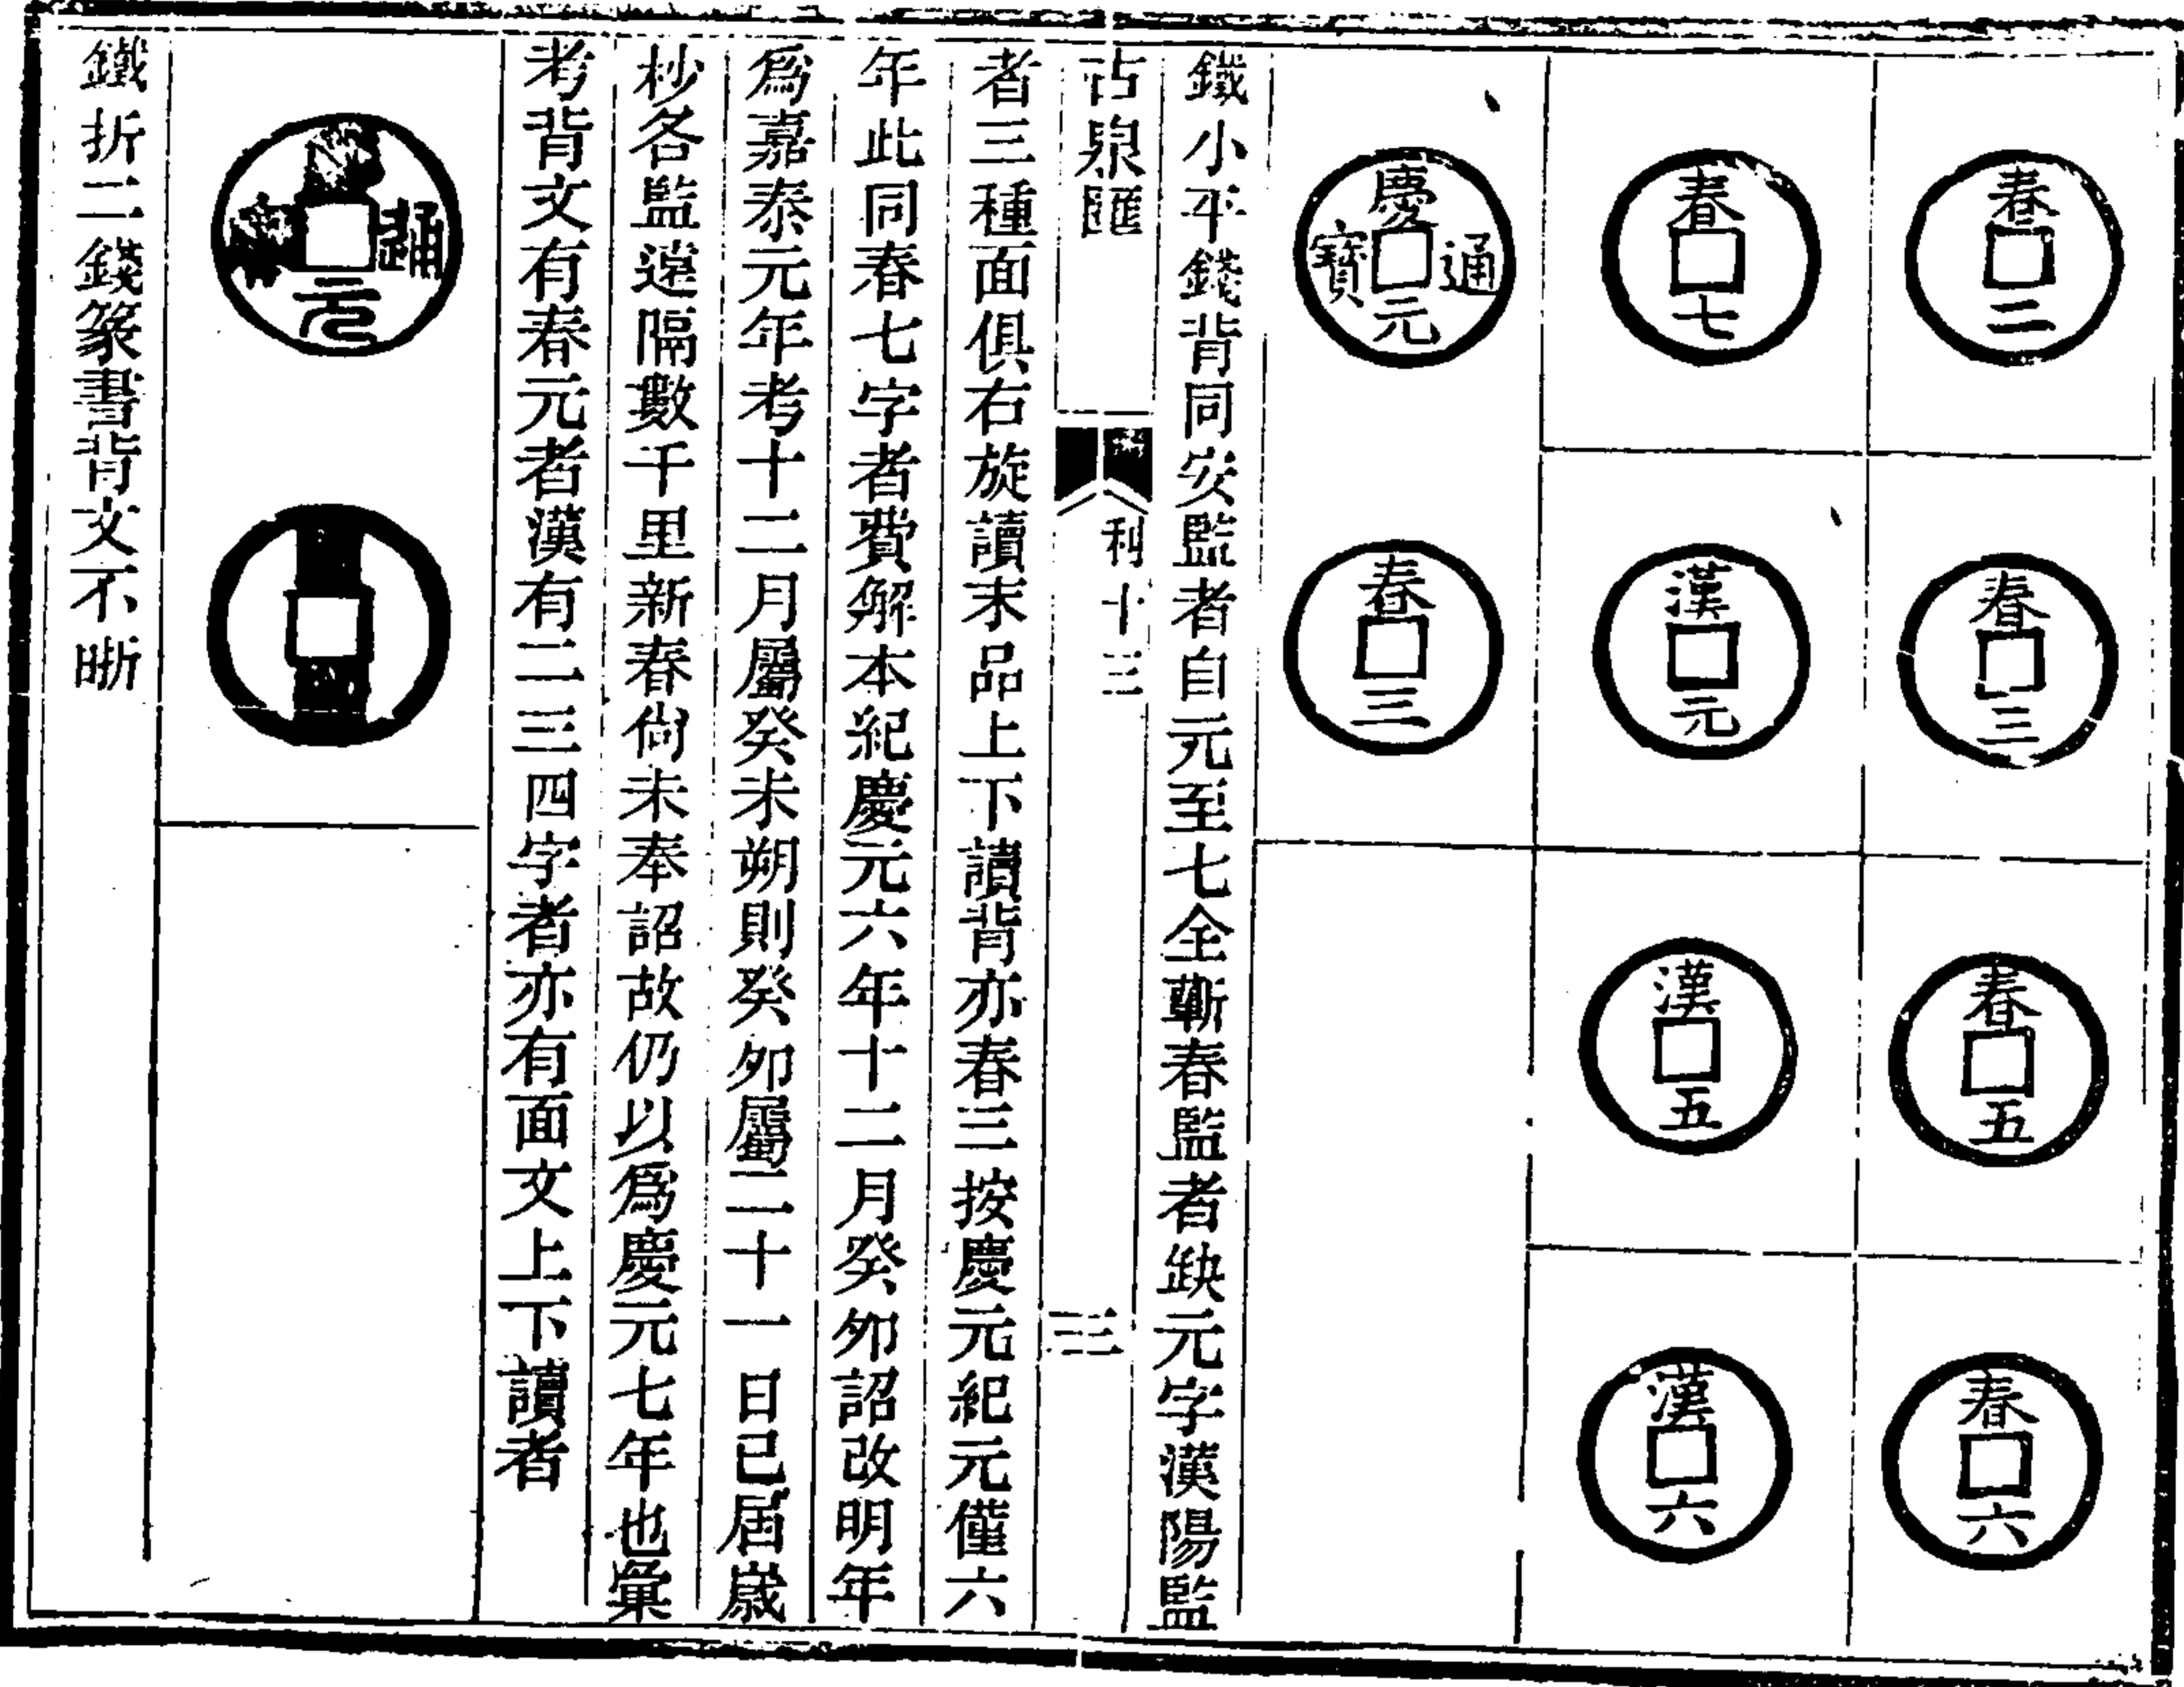 春二
春三
春五
春六
春七
漢元
漢五
漢六
慶元通寶
春三
鐵小平錢背同安監者自元至七全蘄春監者缺元字漢陽監
古泉匯
利十三
三
者三種面俱右旋讀末品上下讀背亦春三按慶元紀元僅六
年此同春七字者費解本紀慶元六年十二月癸夘詔改明年
爲嘉泰元年考十二月屬癸未朔則癸夘屬二十一日已屆歲
杪各監遼隔數千里新春尙未奉詔故仍以爲慶元七年也彙
考背文有春元者漢有二三四字者亦有面文上下讀者
通元
鐵折二錢篆書背文不晰